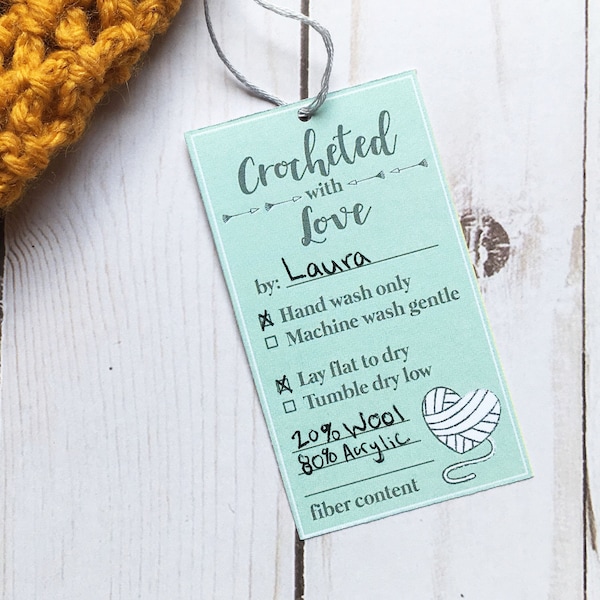 Crocheted
with
Love
by: Laura
☒ Hand wash only
☐ Machine wash gentle
☒ Lay flat to dry
☐ Tumble dry low
20% Wool
80% Acrylic
fiber content